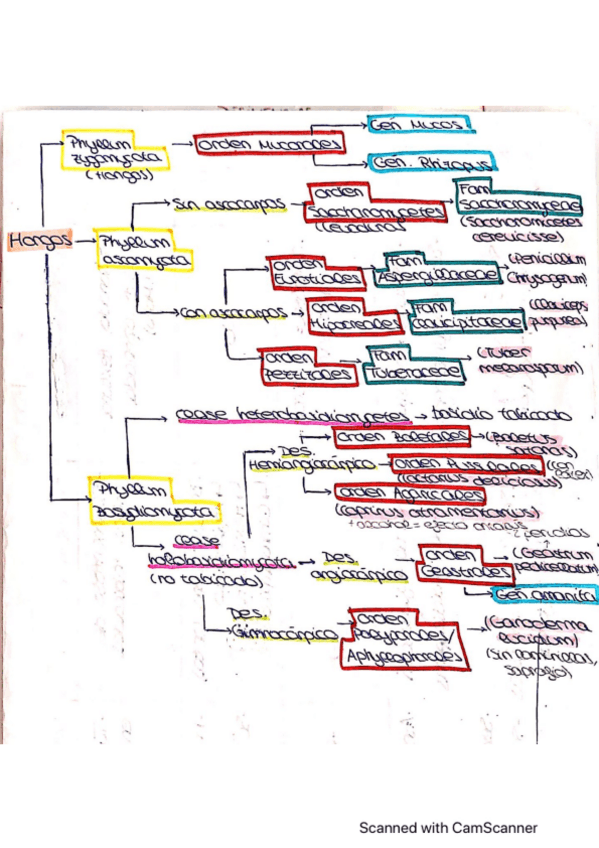 Phyllum
zygomycota
(Hongos)
Orden Mucorales
Gén Mucos.
Gén. Rhizopus
Hongos
Phyllum
ascomycota
Sin ascocarpos
Orden
Saccharomycetes
(Levaduras
Fam
Saccharomyceae
(Saccharomicetes
cerevicisse)
Con ascocarpos
Orden
Eurotiales
Fam
Aspergillaceae
(Penicillium
Chrysogenum)
Orden
Hipocreales
Fam
Claviciptaceae
(Claviceps
purpurea)
Orden
Pezzizales
Fam
Tuberaceae
(Tuber
melanosporum)
Phyllum
Basydiomycota
clase heterobasidiomycetes → basidio tabicado
Des.
Hemiangiocárpico
Orden Boletales
(Boletus
satanas)
Orden Russulales
(lactarius deliciosus)
Orden Agaricales
(Coprinus atramentarius)
+ alcohol = efecto antabús
clase
holobasidiomycota
(no tabicado)
Des.
angiocárpico
Orden
Geastrales
2 peridios
(Geastrum
pedicellarum)
Gén amanita
Des.
Gimnocárpico
Orden
Polyporales/
Aphyllophorales
(Ganoderma
lucidum)
(Sin laminillas,
saprofio)
Scanned with CamScanner